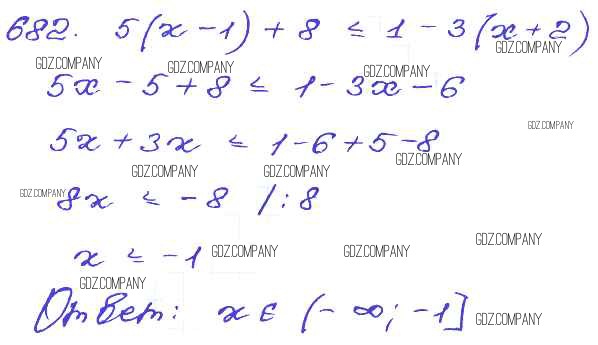 682. 5(x - 1) + 8 ≤ 1 - 3(x + 2)
GDZ.COMPANY
GDZ.COMPANY GDZ.COMPANY GDZ.COMPANY
5x - 5 + 8 ≤ 1 - 3x - 6
GDZ.COMPANY
5x + 3x ≤ 1 - 6 + 5 - 8
GDZ.COMPANY
GDZ.COMPANY GDZ.COMPANY
GDZ.COMPANY 8x ≤ -8 /:8
x ≤ -1 GDZ.COMPANY GDZ.COMPANY GDZ.COMPANY
GDZ.COMPANY
Ответ: x ∈ (-∞; -1] GDZ.COMPANY